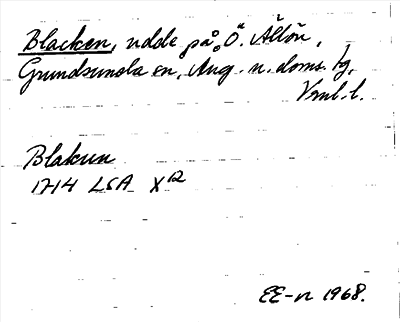 Blacken, udde på Ö. Ältön,
Grundsunda sn, Ång. n. doms. tg,
Vnl. l.
Blakun
1714 LSA X12
EE-n 1968.